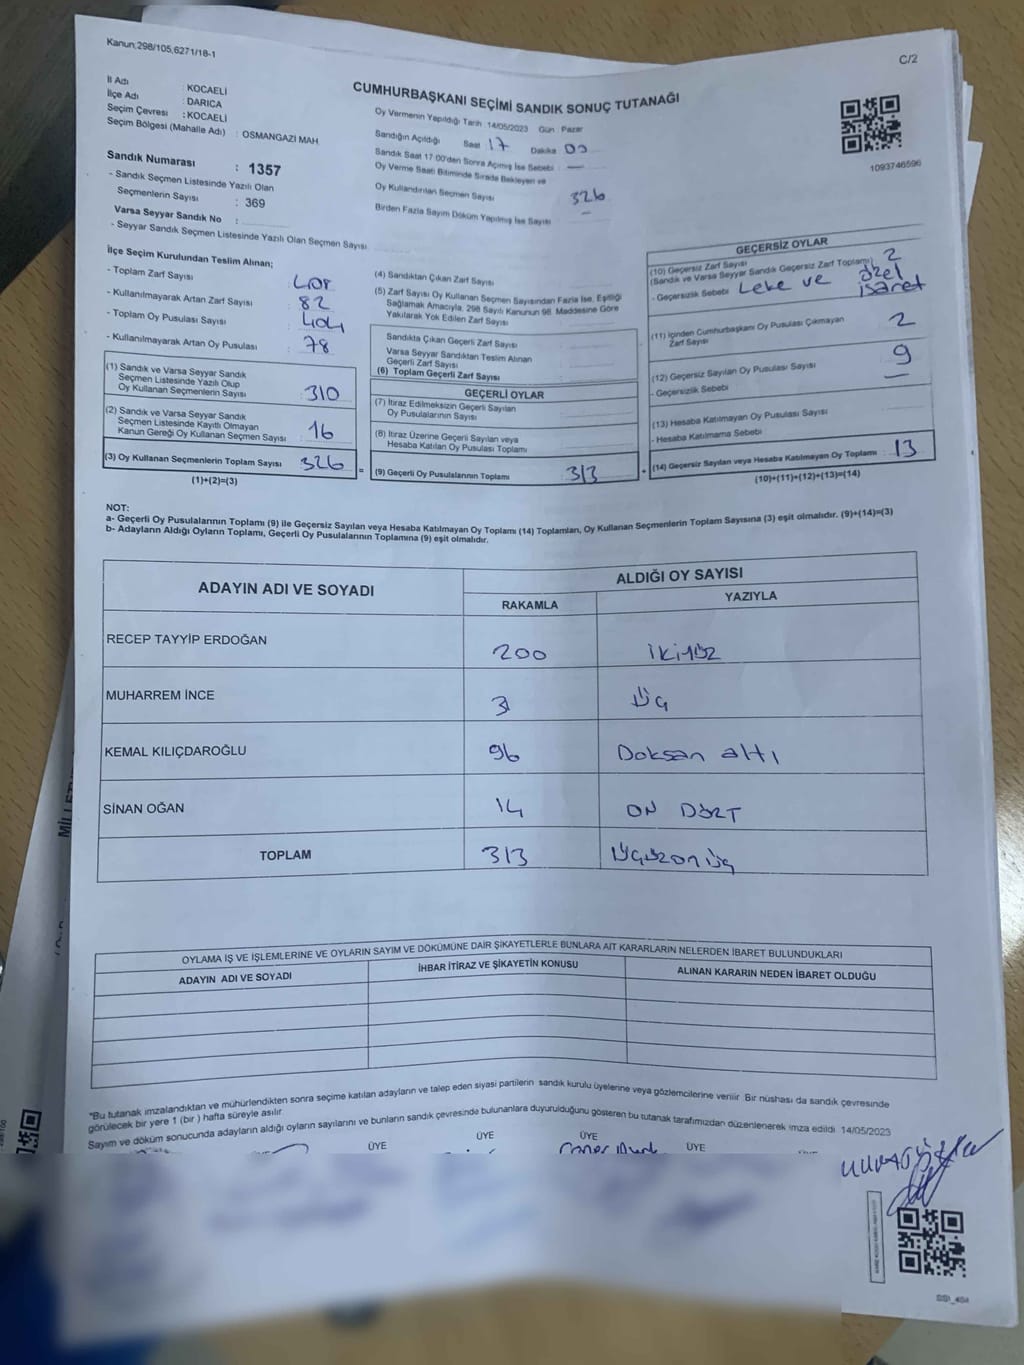 Kanun;298/105,6271/18-1
C/2
İl Adı : KOCAELİ
İlçe Adı : DARICA
Seçim Çevresi : KOCAELİ
Seçim Bölgesi (Mahalle Adı) : OSMANGAZİ MAH.
Sandık Numarası : 1357
- Sandık Seçmen Listesinde Yazılı Olan
Seçmenlerin Sayısı : 369
Varsa Seyyar Sandık No :
- Seyyar Sandık Seçmen Listesinde Yazılı Olan Seçmen Sayısı
CUMHURBAŞKANI SEÇİMİ SANDIK SONUÇ TUTANAĞI
Oy Vermenin Yapıldığı Tarih 14/05/2023 Gün Pazar
Sandığın Açıldığı Saat 17 Dakika 00
Sandık Saat 17:00'den Sonra Açımış İse Sebebi : —
Oy Verme Saati Bitiminde Sırada Bekleyen ve
Oy Kullandırılan Seçmen Sayısı 326
Birden Fazla Sayım Döküm Yapılmış İse Sayısı —
1093746596
İlçe Seçim Kurulundan Teslim Alınan;
- Toplam Zarf Sayısı : 408
- Kullanılmayarak Artan Zarf Sayısı : 82
- Toplam Oy Pusulası Sayısı : 404
- Kullanılmayarak Artan Oy Pusulası : 78
(1) Sandık ve Varsa Seyyar Sandık
Seçmen Listesinde Yazılı Olup
Oy Kullanan Seçmenlerin Sayısı : 310
(2) Sandık ve Varsa Seyyar Sandık
Seçmen Listesinde Kayıtlı Olmayan
Kanun Gereği Oy Kullanan Seçmen Sayısı : 16
(3) Oy Kullanan Seçmenlerin Toplam Sayısı : 326
(1)+(2)=(3)
(4) Sandıktan Çıkan Zarf Sayısı
(5) Zarf Sayısı Oy Kullanan Seçmen Sayısından Fazla İse, Eşitliği
Sağlamak Amacıyla, 298 Sayılı Kanunun 98. Maddesine Göre
Yakılarak Yok Edilen Zarf Sayısı
Sandıkta Çıkan Geçerli Zarf Sayısı
Varsa Seyyar Sandıktan Teslim Alınan
Geçerli Zarf Sayısı
(6) Toplam Geçerli Zarf Sayısı
GEÇERLİ OYLAR
(7) İtiraz Edilmeksizin Geçerli Sayılan
Oy Pusulalarının Sayısı
(8) İtiraz Üzerine Geçerli Sayılan veya
Hesaba Katılan Oy Pusulası Toplamı
= (9) Geçerli Oy Pusulalarının Toplamı : 313
GEÇERSİZ OYLAR
(10) Geçersiz Zarf Sayısı
(Sandık ve Varsa Seyyar Sandık Geçersiz Zarf Toplamı) : 2
- Geçersizlik Sebebi Leke ve özel
işaret
(11) İçinden Cumhurbaşkanı Oy Pusulası Çıkmayan
Zarf Sayısı 2
(12) Geçersiz Sayılan Oy Pusulası Sayısı 9
- Geçersizlik Sebebi —
(13) Hesaba Katılmayan Oy Pusulası Sayısı
- Hesaba Katılmama Sebebi
+ (14) Geçersiz Sayılan veya Hesaba Katılmayan Oy Toplamı : 13
(10)+(11)+(12)+(13)=(14)
NOT:
a- Geçerli Oy Pusulalarının Toplamı (9) ile Geçersiz Sayılan veya Hesaba Katılmayan Oy Toplamı (14) Toplamları, Oy Kullanan Seçmenlerin Toplam Sayısına (3) eşit olmalıdır. (9)+(14)=(3)
b- Adayların Aldığı Oyların Toplamı, Geçerli Oy Pusulalarının Toplamına (9) eşit olmalıdır.
ADAYIN ADI VE SOYADI
ALDIĞI OY SAYISI
RAKAMLA YAZIYLA
RECEP TAYYİP ERDOĞAN 200 ikiyüz
MUHARREM İNCE 3 üç
KEMAL KILIÇDAROĞLU 96 Doksan altı
SİNAN OĞAN 14 ON DÖRT
TOPLAM 313 üçyüzonüç
OYLAMA İŞ VE İŞLEMLERİNE VE OYLARIN SAYIM VE DÖKÜMÜNE DAİR ŞİKAYETLERLE BUNLARA AİT KARARLARIN NELERDEN İBARET BULUNDUKLARI
ADAYIN ADI VE SOYADI İHBAR İTİRAZ VE ŞİKAYETİN KONUSU ALINAN KARARIN NEDEN İBARET OLDUĞU
"Bu tutanak imzalandıktan ve mühürlendikten sonra seçime katılan adayların ve talep eden siyasi partilerin sandık kurulu üyelerine veya gözlemcilerine verilir. Bir nüshası da sandık çevresinde
görülecek bir yere 1 (bir ) hafta süreyle asılır.
Sayım ve döküm sonucunda adayların aldığı oyların sayılarını ve bunların sandık çevresinde bulunanlara duyurulduğunu gösteren bu tutanak tarafımızdan düzenlenerek imza edildi. 14/05/2023
ÜYE ÜYE ÜYE ÜYE